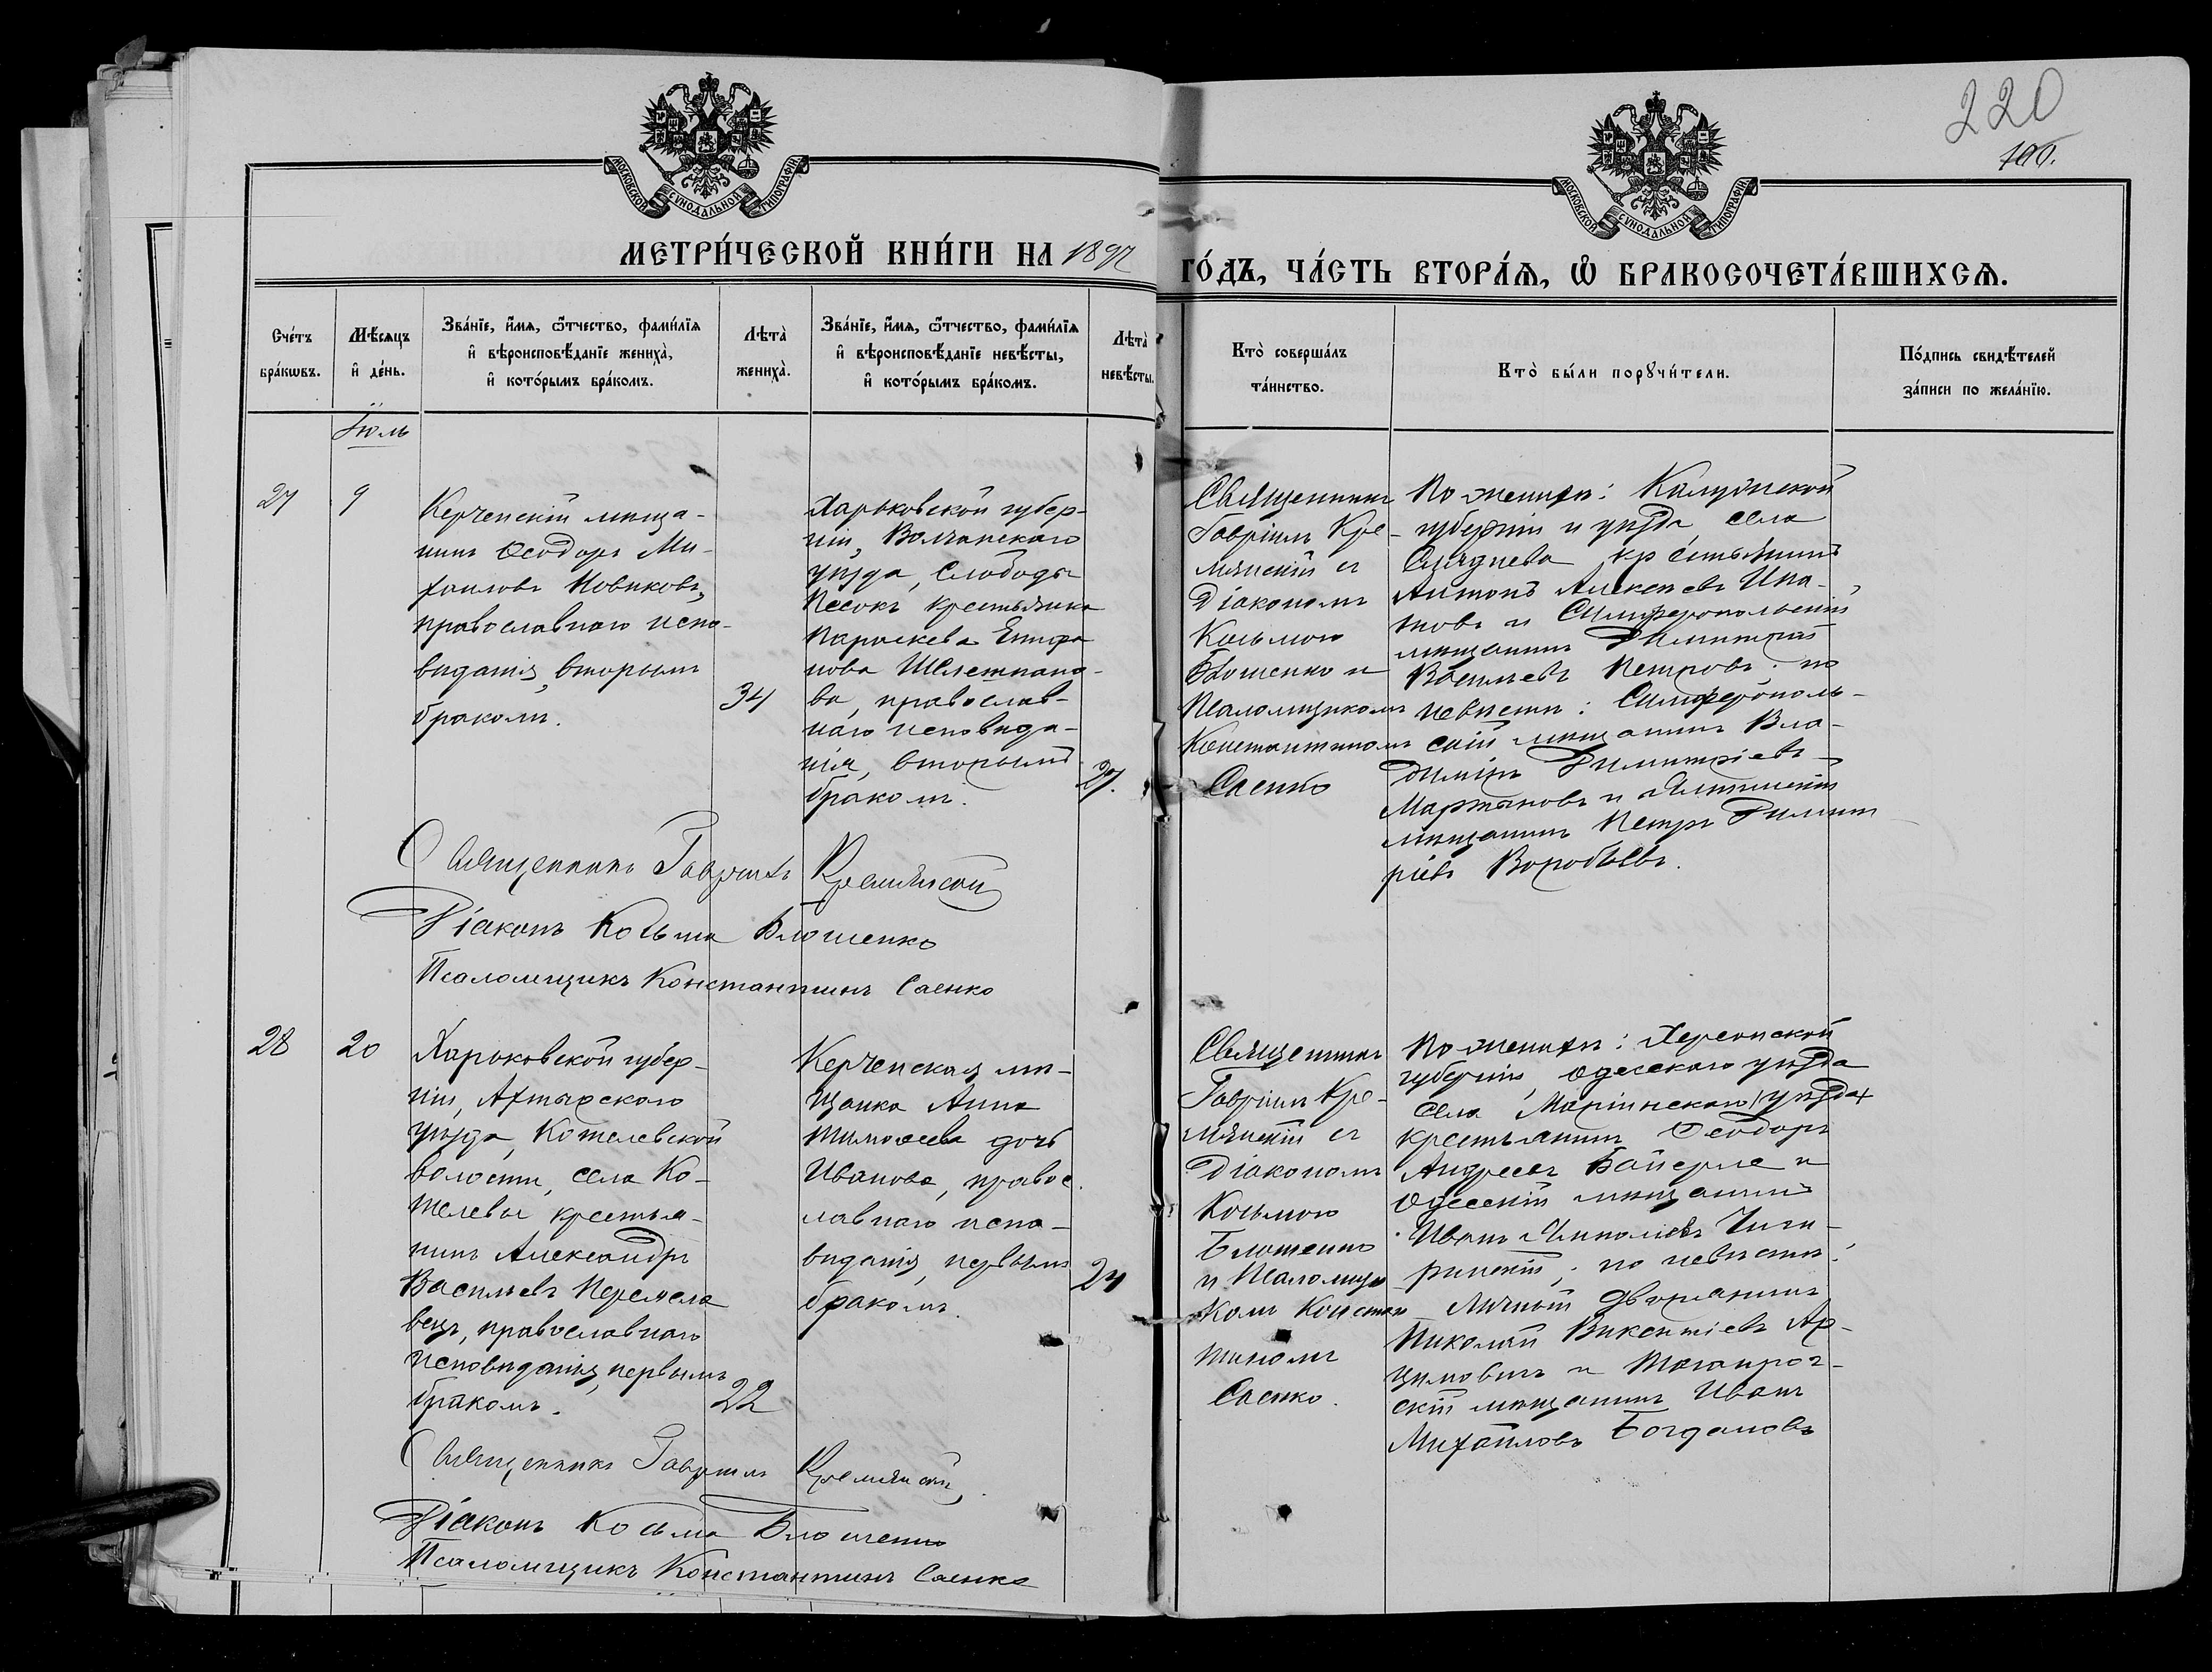 220
100.
МОСКОВСКОЙ СУНОДАЛЬНОЙ ТИПОГРАФІИ
МОСКОВСКОЙ СУНОДАЛЬНОЙ ТИПОГРАФІИ
МЕТРИ́ЧЕСКОЙ КНИ́ГИ НА 1897
ГО́ДЪ, ЧА́СТЬ ВТОРА́Я, Ѿ БРАКОСОЧЕТА́ВШИХСЯ.
Сче́тъ
бра́кѡвъ.
Мѣ́сяцъ
и҆ де́нь.
Зва́нїе, и҆́мя, ѻ҆́тчество, фами́лїя
и҆ вѣроисповѣ́данїе жениха̀,
и҆ кото́рымъ бра́комъ.
Лѣта̀
жениха̀.
Зва́нїе, и҆́мя, ѻ҆́тчество, фами́лїя
и҆ вѣроисповѣ́данїе невѣ́сты,
и҆ кото́рымъ бра́комъ.
Лѣта̀
невѣ́сты.
Кто̀ соверша́лъ
та́инство.
Кто̀ бы́ли порꙋчи́тели.
По́дпись свидѣ́телей
за́писи по жела́нїю.
Іюль
27
9
Керченскій мѣща-
нинъ Ѳеодоръ Ми-
хаиловъ Новиковъ,
православнаго испо-
вѣданія, вторымъ
бракомъ.
34
Харьковской губер-
ніи, Волчанскаго
уѣзда, Слободы
Песокъ крестьянка
Параскева Епифа
нова Шелестпано-
ва, православ-
наго исповѣда-
нія, вторымъ
бракомъ.
27.
Священникъ
Гавріилъ Кре-
мянскій съ
Діакономъ
Козьмою
Блошенко и
Псаломщикомъ
Константиномъ
Саенко
По женихѣ: Калужской
губерніи и уѣзда, села
крестьянинъ
Антонъ Алексѣевъ Ипа-
товъ и Симферопольскій
мѣщанинъ Димитрій
Васильевъ Петровъ. по
невѣстѣ: Симферополь-
скій мѣщанинъ Вла-
диміръ Димитріевъ
Мартыновъ и Ялтинскій
мѣщанинъ Петръ Димит
ріевъ Воробьевъ.
Священникъ Гавріилъ Кремянскій
Діаконъ Козьма Блошенко
Псаломщикъ Константинъ Саенко
28
20
Харьковской губер-
ніи, Ахтырскаго
уѣзда, Котелевской
волости, села Ко-
телевы крестья-
нинъ Александръ
Васильевъ Перемела
вецъ, православнаго
исповѣданія, первымъ
бракомъ.
22
Керченская мѣ-
щанка Анна
Тимоѳеева дочь
Иванова, правос
лавнаго испо-
вѣданія, первымъ
бракомъ.
24
Священникъ
Гавріилъ Кре-
мянскій съ
Діакономъ
Козьмою
Блошенко
и Псаломщи
комъ Констан
тиномъ
Саенко.
По женихѣ: Херсонской
губерніи, Одесскаго уѣзда
села Маріинскаго (уѣзда)
крестьянинъ Ѳеодоръ
Андреевъ Байерле и
Одесскій мѣщанинъ
Иванъ Чиги-
ринскій; по невѣстѣ:
Личный дворянинъ
Николай Викентіевъ Ар-
цимовичъ и Таганрог-
скій мѣщанинъ Иванъ
Михайловъ Богдановъ
Священникъ Гавріилъ Кремянскій
Діаконъ Козьма Блошенко
Псаломщикъ Константинъ Саенко